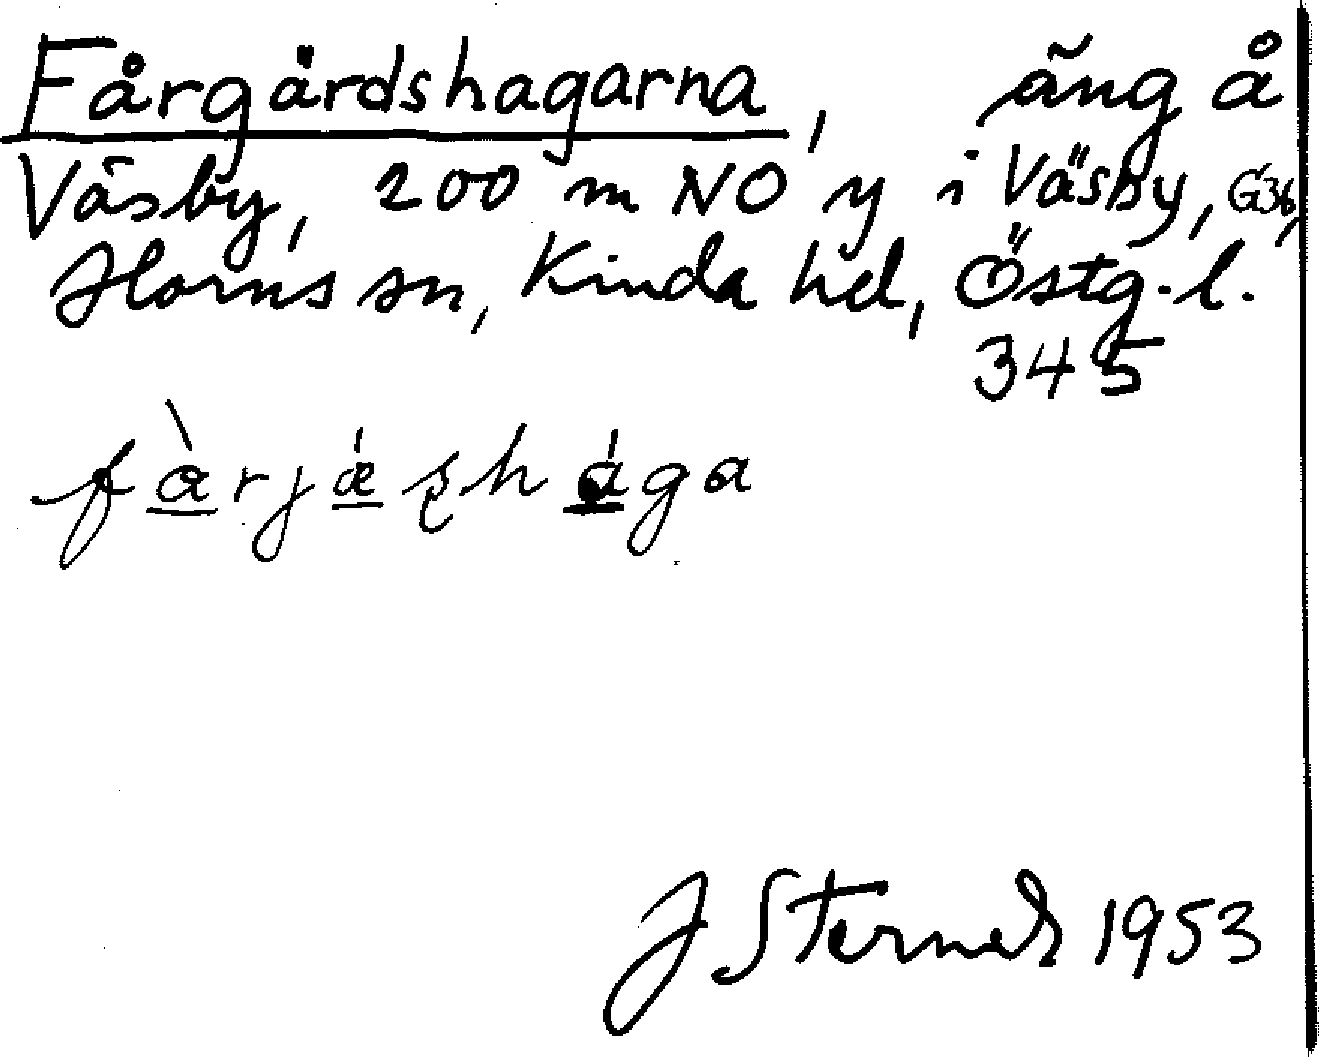 Fårgårdshagarna, äng å
Väsby, 200 m NO y i Väsby, G36,
Horns sn, Kinda hd, Östg.l.
345
fàrjǽʂhága
J Sterner 1953